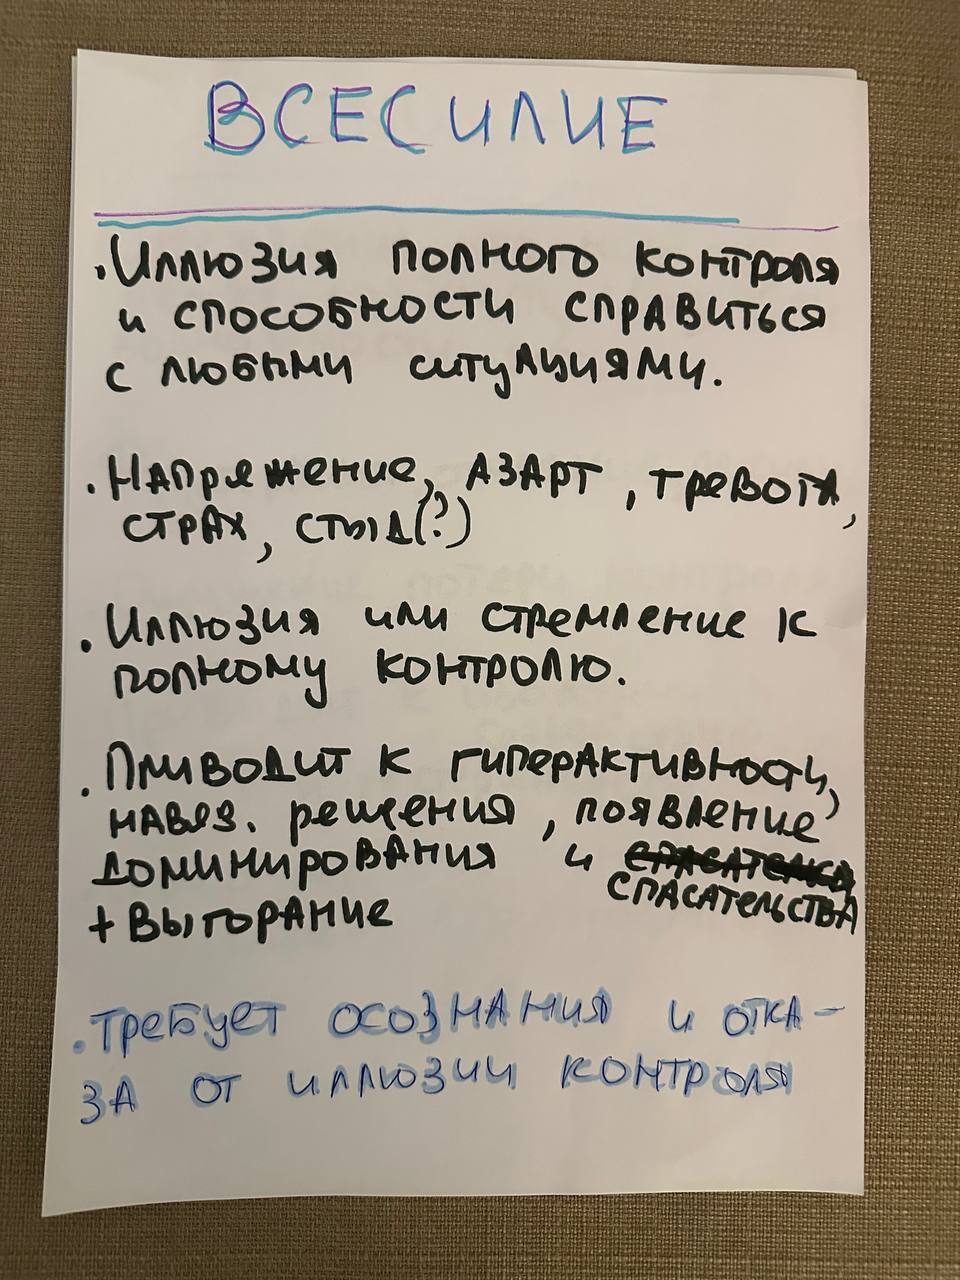 ВСЕСИЛИЕ
. Иллюзия полного контроля
и способности справиться
с любыми ситуациями.
. Напряжение, азарт, тревога,
страх, стыд(?)
. Иллюзия или стремление к
полному контролю.
. Приводит к гиперактивности,
навяз. решения, появление
доминирования и
спасательства
+ выгорание
. Требует осознания и отка-
за от иллюзии контроля